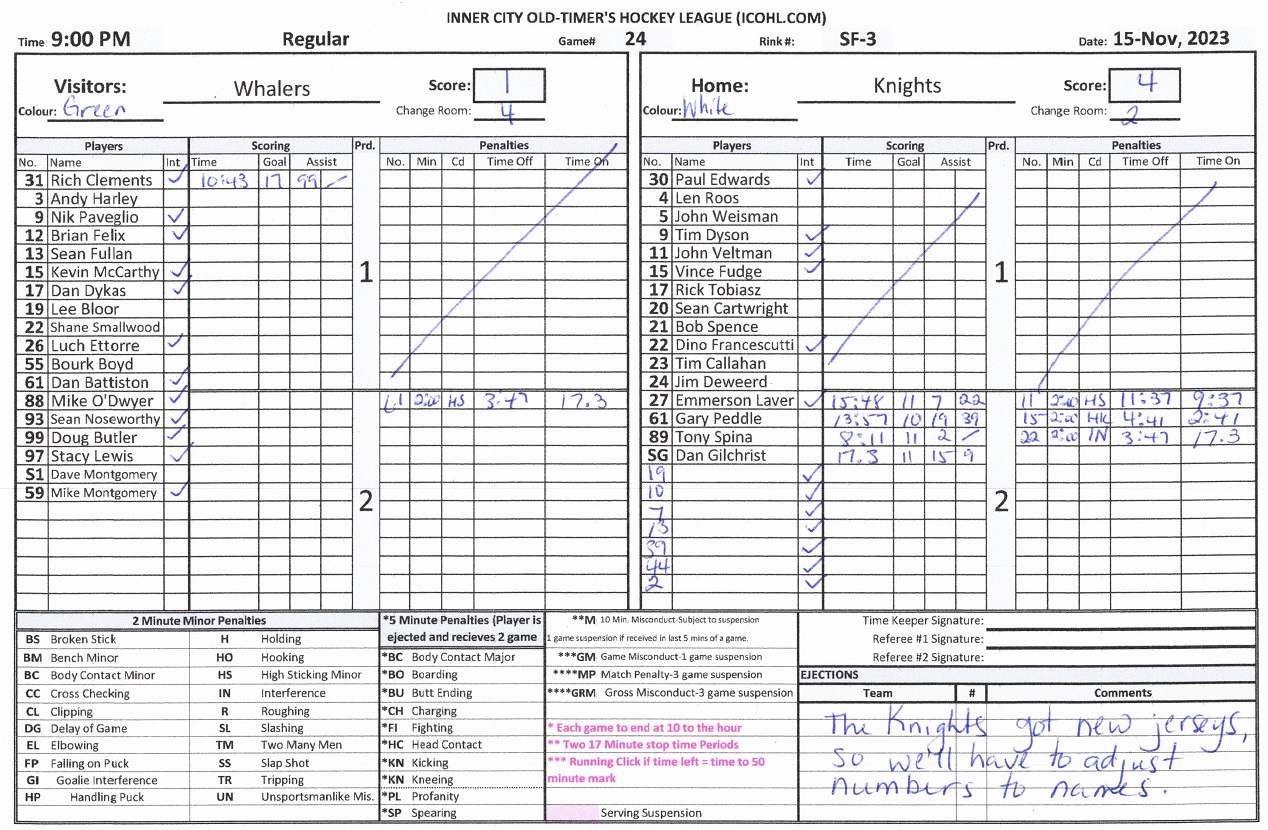 INNER CITY OLD-TIMER'S HOCKEY LEAGUE (ICOHL.COM)
Time 9:00 PM Regular Game# 24 Rink #: SF-3 Date: 15-Nov, 2023
Visitors: Whalers Score: 1
Colour: Green Change Room: 4
Home: Knights Score: 4
Colour: White Change Room: 2
Players Scoring Prd. Penalties
No. Name Int Time Goal Assist No. Min Cd Time Off Time On
31 Rich Clements ✓ 10:43 17 99 /
3 Andy Harley
9 Nik Paveglio ✓
12 Brian Felix ✓
13 Sean Fullan
15 Kevin McCarthy ✓ 1
17 Dan Dykas ✓
19 Lee Bloor
22 Shane Smallwood
26 Luch Ettorre ✓
55 Bourk Boyd
61 Dan Battiston ✓
88 Mike O'Dwyer ✓ 61 2:00 HS 3:47 17.3
93 Sean Noseworthy ✓
99 Doug Butler ✓
97 Stacy Lewis ✓
S1 Dave Montgomery
59 Mike Montgomery ✓ 2
Players Scoring Prd. Penalties
No. Name Int Time Goal Assist No. Min Cd Time Off Time On
30 Paul Edwards ✓
4 Len Roos
5 John Weisman
9 Tim Dyson ✓
11 John Veltman ✓
15 Vince Fudge ✓ 1
17 Rick Tobiasz
20 Sean Cartwright
21 Bob Spence
22 Dino Francescutti ✓
23 Tim Callahan
24 Jim Deweerd
27 Emmerson Laver ✓ 15:48 11 7 22 11 2:00 HS 11:37 9:37
61 Gary Peddle 13:57 10 19 39 15 2:00 HK 4:41 2:41
89 Tony Spina 8:11 11 2 / 22 2:00 IN 3:47 17.3
SG Dan Gilchrist 17.3 11 15 9
19 ✓
10 ✓
7 ✓ 2
13 ✓
39 ✓
44 ✓
2 ✓
2 Minute Minor Penalties
BS Broken Stick H Holding
BM Bench Minor HO Hooking
BC Body Contact Minor HS High Sticking Minor
CC Cross Checking IN Interference
CL Clipping R Roughing
DG Delay of Game SL Slashing
EL Elbowing TM Two Many Men
FP Falling on Puck SS Slap Shot
GI Goalie Interference TR Tripping
HP Handling Puck UN Unsportsmanlike Mis.
*5 Minute Penalties (Player is
ejected and recieves 2 game
*BC Body Contact Major
*BO Boarding
*BU Butt Ending
*CH Charging
*FI Fighting
*HC Head Contact
*KN Kicking
*KN Kneeing
*PL Profanity
*SP Spearing
**M 10 Min. Misconduct-Subject to suspension
1 game suspension if received in last 5 mins of a game.
***GM Game Misconduct-1 game suspension
****MP Match Penalty-3 game suspension
****GRM Gross Misconduct-3 game suspension
* Each game to end at 10 to the hour
** Two 17 Minute stop time Periods
*** Running Click if time left = time to 50
minute mark
Serving Suspension
Time Keeper Signature:
Referee #1 Signature:
Referee #2 Signature:
EJECTIONS
Team # Comments
The Knights got new jerseys,
so we'll have to adjust
numbers to names.